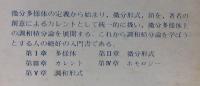 微分多様体の定義から始まり，微分形式，鎖を，著者の
創意によるカレントとして統一的に扱い，微分多様体上
の調和積分論を展開する。これから調和積分論を学ぼう
とする人の絶好の入門書である。
第Ⅰ章 多様体 第Ⅱ章 微分形式
第Ⅲ章 カレント 第Ⅳ章 ホモロジー
第Ⅴ章 調和形式